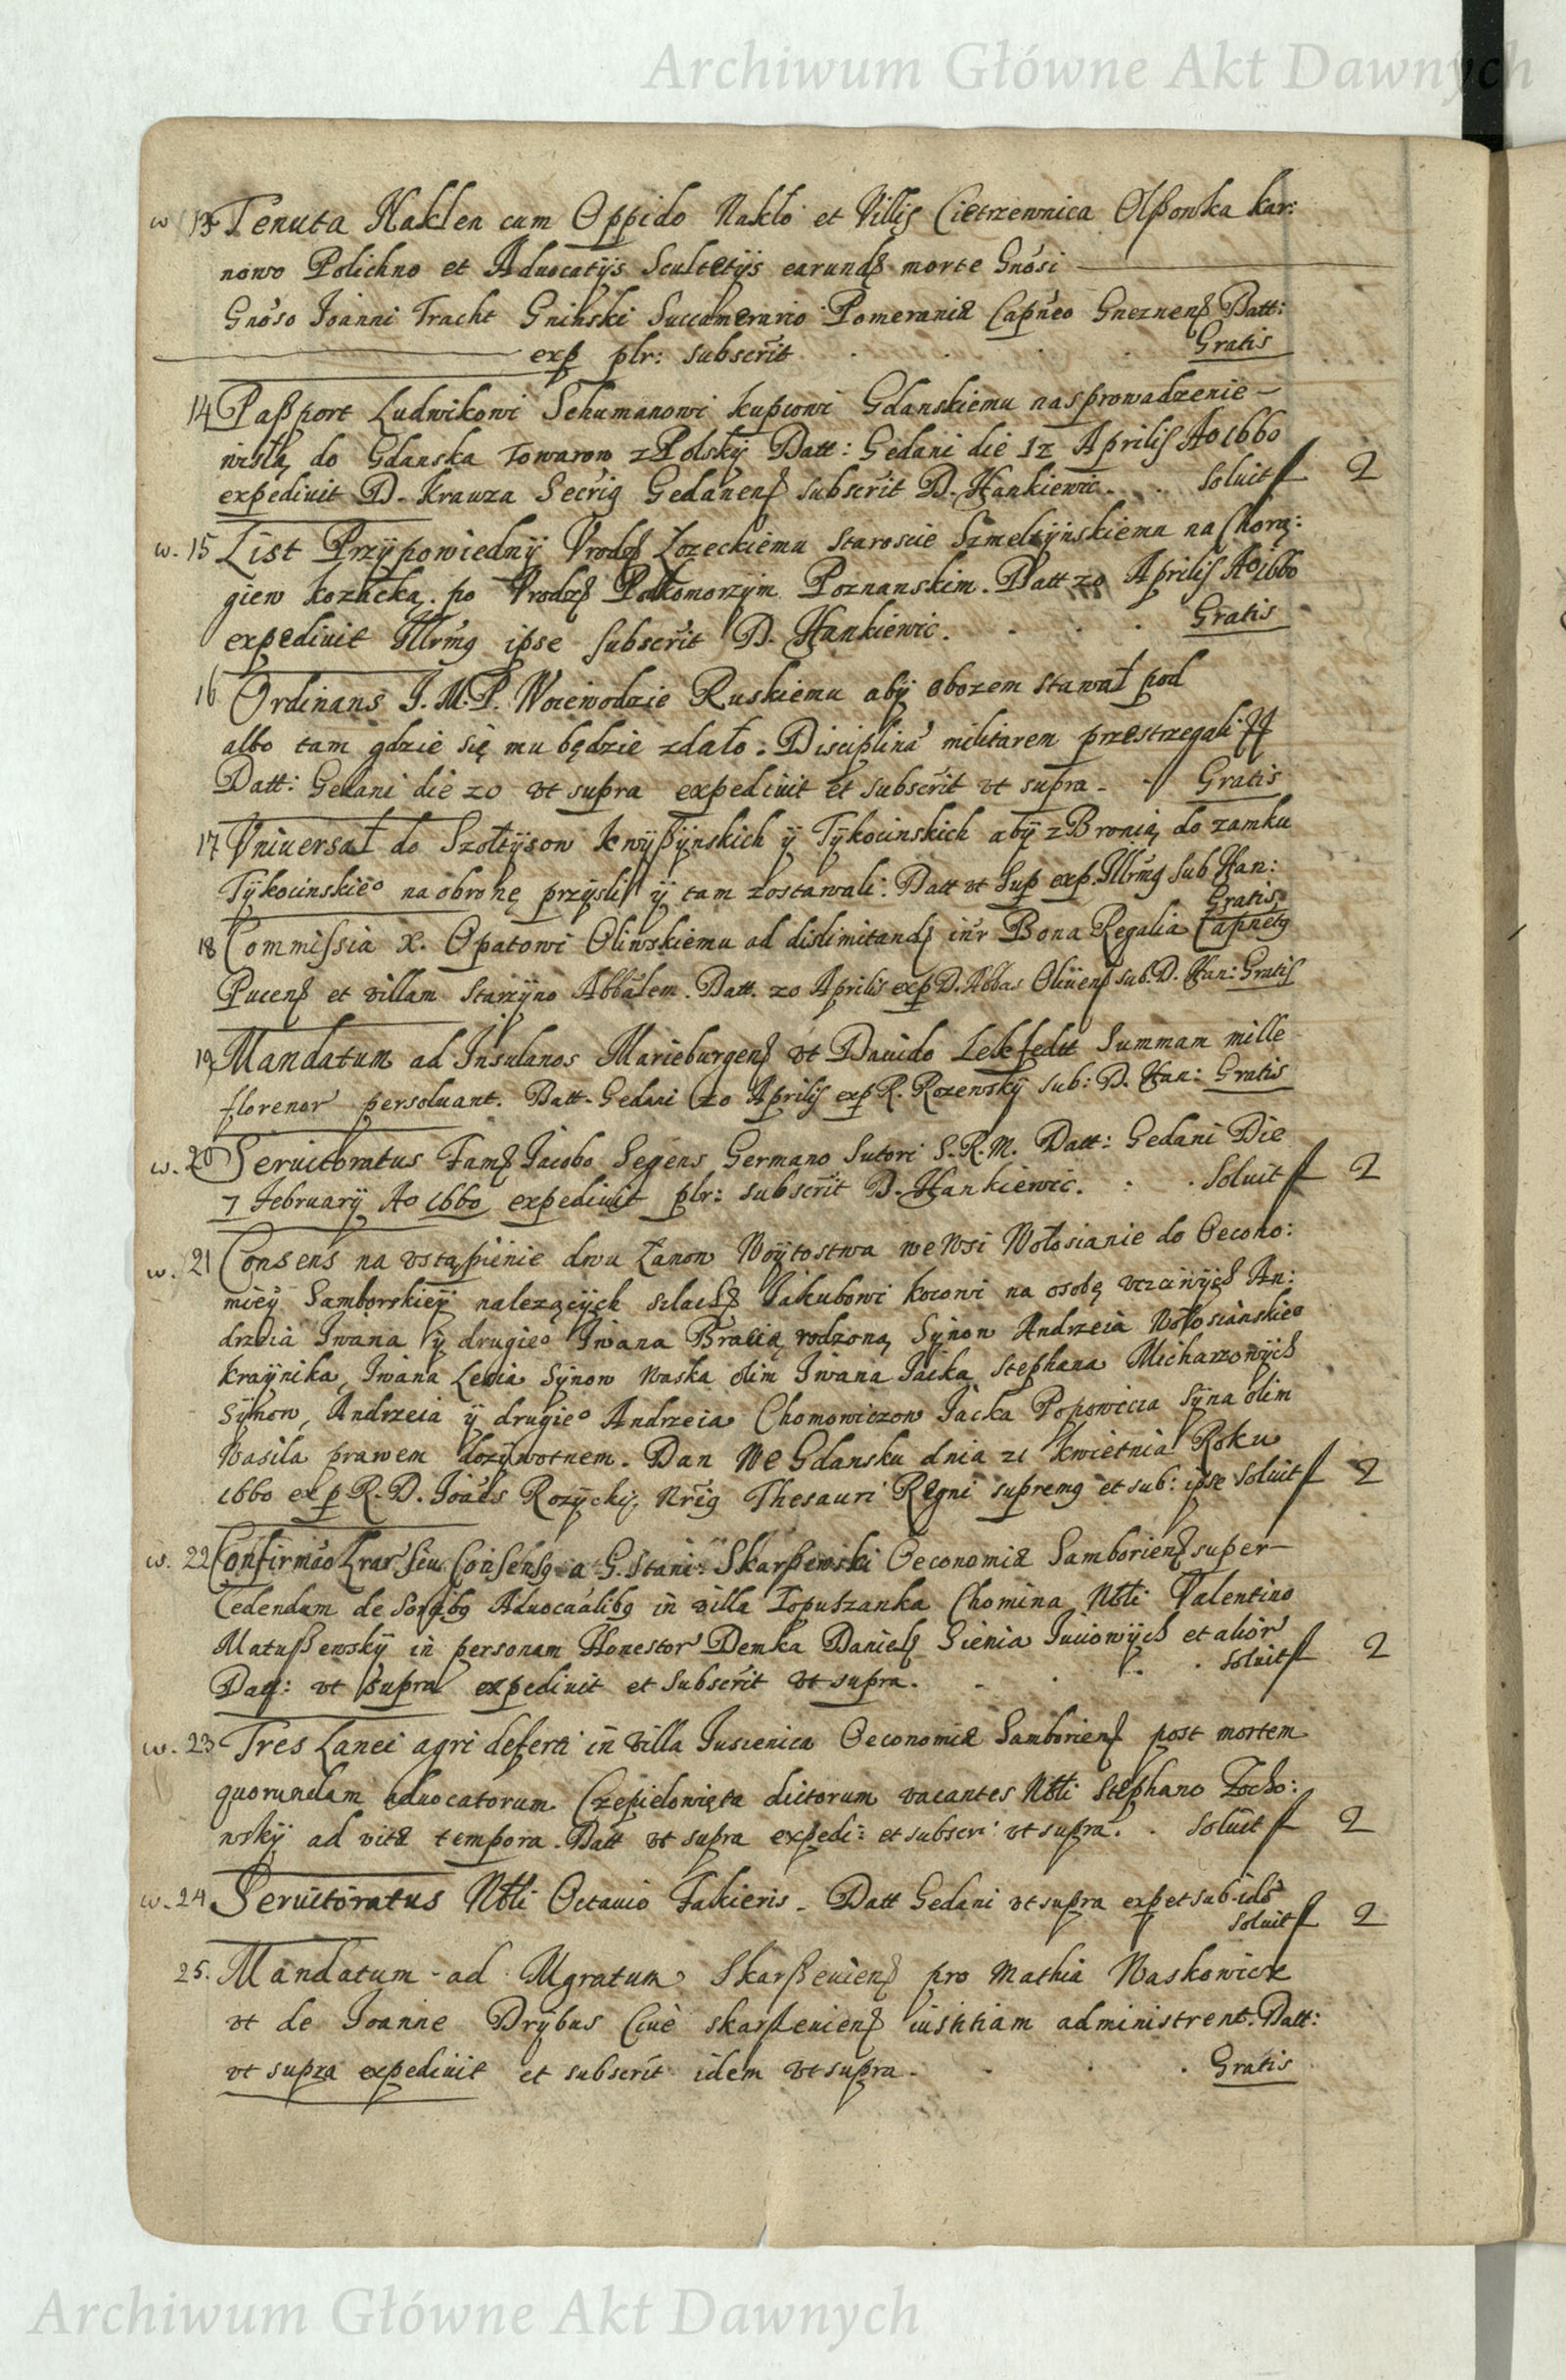 Archiwum Główne Akt Dawnych
w 13 Tenuta Naklen cum Oppido Nakło et Villis Cietrzewnica Olßonka kar:
nowo Polichno et Aduocatÿs Scultetÿs earundz morte Gnosi
Gnoso Joanni Tracht Gninski Succamerario Pomeraniæ Capneo Gneznens Datt:
exp plr: subscrit . . . . Gratis
14 Paßport Ludwikowi Schumanowi kupcowi Gdanskiemu na sprowadzenie
wisłą do Gdanska towarow z Polsky Datt: Gedani die 12 Aprilis Ao 1660
expediuit D. Krauza Secrig Gedanens subscrit D. Hankiewic. . . Soluit f 2
w. 15 List Przÿpowiednÿ Vrodz Łozeckiemu Staroscie Szmeltÿnskiemu na Chorą:
giew kozacką po Vrodz Podkomorzÿm Poznanskim. Datt 20 Aprilis Ao 1660
expediuit Illrmg ipse subscrit D. Hankiewic. . . . Gratis
16 Ordinans J. M. P. Woiewodzie Ruskiemu abÿ obozem stawał pod
albo tam gdzie się mu będzie zdało. Disciplina militarem przestrzegali
Datt: Gedani die 20 vt supra expediuit et subscrit vt supra - Gratis
17 Vniuersał do Szołtÿsow knÿßÿnskich ÿ Tÿkocinskich abÿ z Bronią do zamku
Tÿkocinskieo na obronę przÿsli ÿ tam zostawali. Datt vt sup exp. Illrmg sub Han:
Gratis
18 Commissia X. Opatowi Oliwskiemu ad dislimitands inr Bona Regalia Capnetg
Pucens et villam Starzÿno Abbalem. Datt. 20 Aprilis exp D. Abbas Oliuens sub. D. Han: Gratis
19 Mandatum ad Insulanos Marieburgens vt Dauido Lekfedtt Summam mille
florenor persoluant. Datt. Gedani 20 Aprilis exp R. Rozewskÿ sub: D. Han: Gratis
w. 20 Seruitoratus Fams Jacobo Segens Germano Sutori S. R. M. Datt: Gedani Die
7 Februarÿ Ao 1660 expediuit plr: subscrit D. Hankiewic. . . Soluit f 2
w. 21 Consens na vstąpienie dwu Łanow Woÿtostwa we Wsi Wołosianie do Oecono:
mieÿ Samborskieÿ nalezącÿch szlachs Jakubowi kocowi na osobę vczciwÿch An:
drzeia Iwana ÿ drugieo Iwana Bracią rodzoną Sÿnow Andrzeia Wołosianskieo
kraÿnika, Iwana Lecia Sÿnow Waska olim Iwana Jacka Stephana Micharzowÿch
Sÿnow, Andrzeia ÿ drugieo Andrzeia Chomowiczow Jacka Popowicia Sÿna olim
Wasila prawem dozÿwotnem. Dan We Gdansku dnia 21 kwietnia Roku
1660 exp R. D. Joaes Rozÿckj, Nrig Thesauri Regni supremg et sub: ipse Soluit f 2
w. 22 Confirmao Lrar siu Consensg a G. Stani: Skarßewski Oeconomiæ Samboriens super
Cedendam de Sortibg Aduocaalibg in villa Łopuszanka Chomina Nbli Valentino
Matußewskÿ in personam Honestor Demka Daniels Sienia Juciowÿch et alior
Datt: vt supra expediuit et subscrit vt supra. . . . . Soluit f 2
w. 23 Tres Lanei agri deserti in villa Jusienica Oeconomiæ Samboriens post mortem
quorundam aduocatorum Czepielowięta dictorum vacantes Nbli Stephano Zocho:
wskÿ ad vitæ tempora. Datt vt supra expedi: et subscr: vt supra. . Soluit f 2
w. 24 Seruitoratus Nbli Octauio Fakieris. Datt Gedani vt supra exp et sub. ide
Soluit f 2
25. Mandatum ad Mgratum Skarßeuiens pro Mathia Waskowicz
vt de Joanne Drÿbus Ciue skarßeuiens iustitiam administrent. Datt:
vt supra expediuit et subscrit idem vt supra. . . . Gratis
Archiwum Główne Akt Dawnych